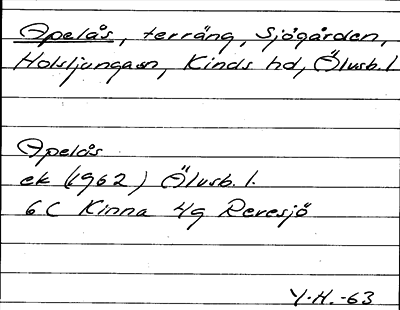 Apelås, terräng, Sjögården,
Holsljungasn, Kinds hd, Älvsb. l
Apelås
ek (1962) Älvsb. l.
6C Kinna 4g Revesjö
Y.H. -63